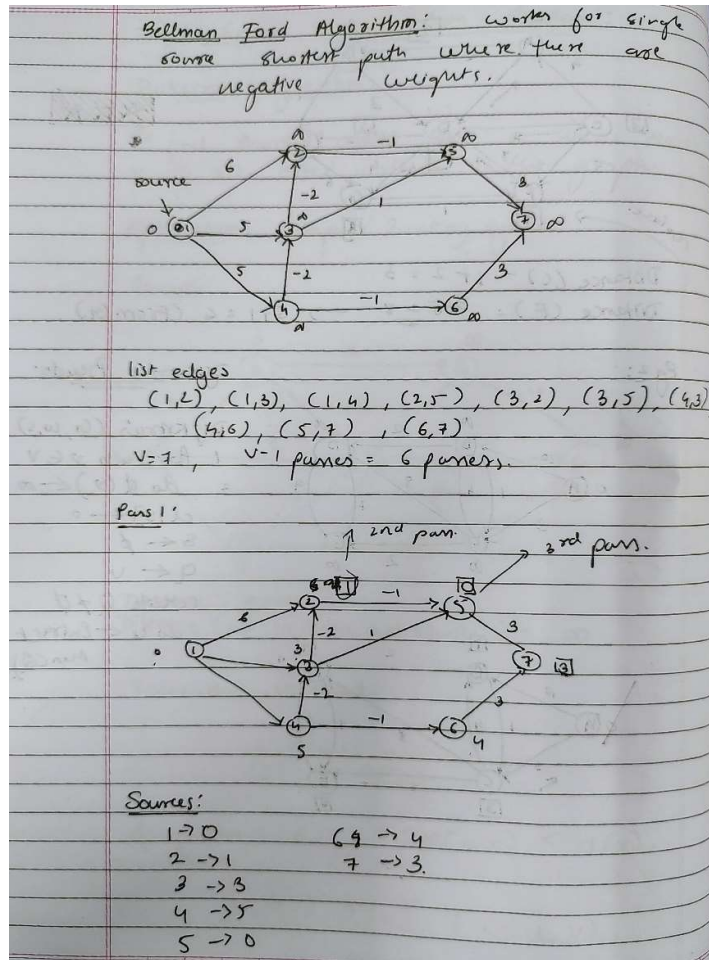 Bellman Ford Algorithm: works for single
source shortest path where there are
negative weights.
∞ -1 ∞
6 2 5 3
source -2 1
0 1 5 3 ∞ 7 ∞
5 -2 3
4 -1 6
∞ ∞
list edges
(1,2), (1,3), (1,4), (2,5), (3,2), (3,5), (4,3)
(4,6), (5,7), (6,7)
V=7, V-1 passes = 6 passess.
Pass 1:
2nd pass.
3rd pass.
1 -1 0
6 2 5
-2 1 3
0 1 3 3 7 3
-2 3
4 -1 6
5 4
Sources:
1→0 6 → 4
2 →1 7 → 3.
3 →3
4 →5
5 →0